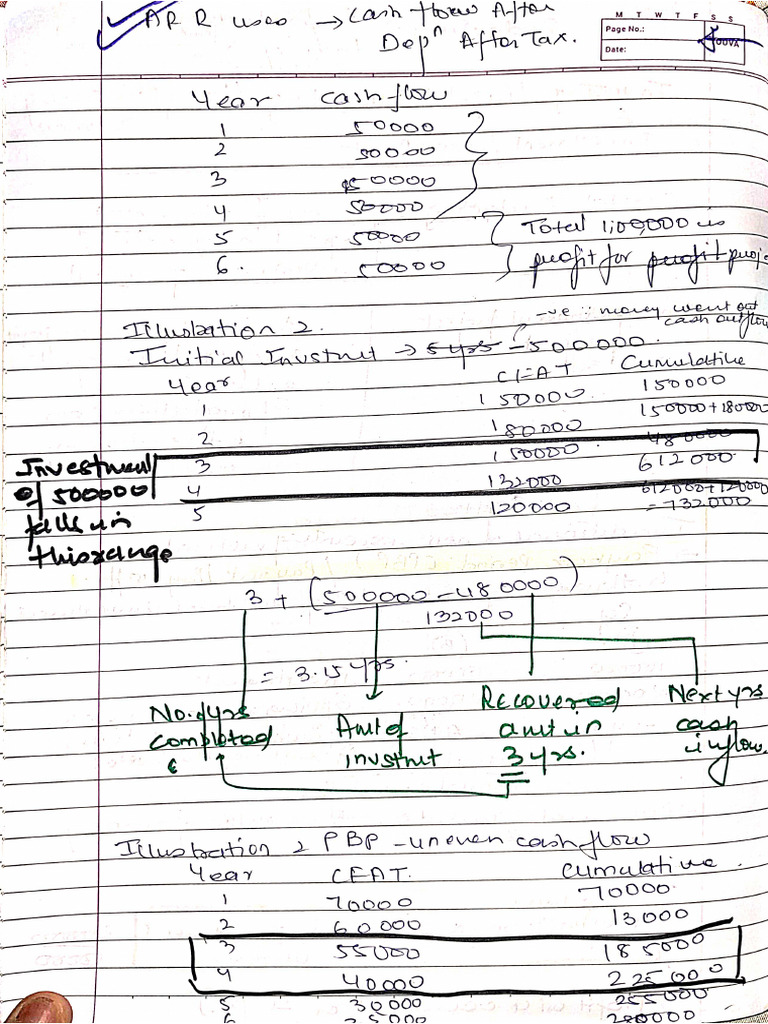 ARR uses → Cash flows After
Depn After Tax.
M T W T F S S
Page No.:
Date:
YOUVA
Year cash flow
1 50000
2 50000
3 50000
4 50000
5 50000
6. 50000
Total 1,00,000 is
profit for profit proj
-ve ∵ money went out
cash outflow
Illustration 2.
Initial Invstnut → 5 yrs - 500000.
Year CFAT Cumulative
1 150000 150000
2 180000 150000+180000
3 150000 480000
4 132000 612000
5 120000 612000+120000
= 732000
Investment
of 500000
falls in
this range
3 + (500000 - 480000)
132000
= 3.15 yrs.
No. of yrs
completed
Amt of
invstnut
Recovered
amt in
3 yrs.
Next yrs
cash
inflow.
Illustration 2 PBP - uneven cash flow
Year CFAT. Cumulative.
1 70000 70000
2 60000 13000
3 55000 185000
4 40000 225000
5 30000 255000
6 25000 280000